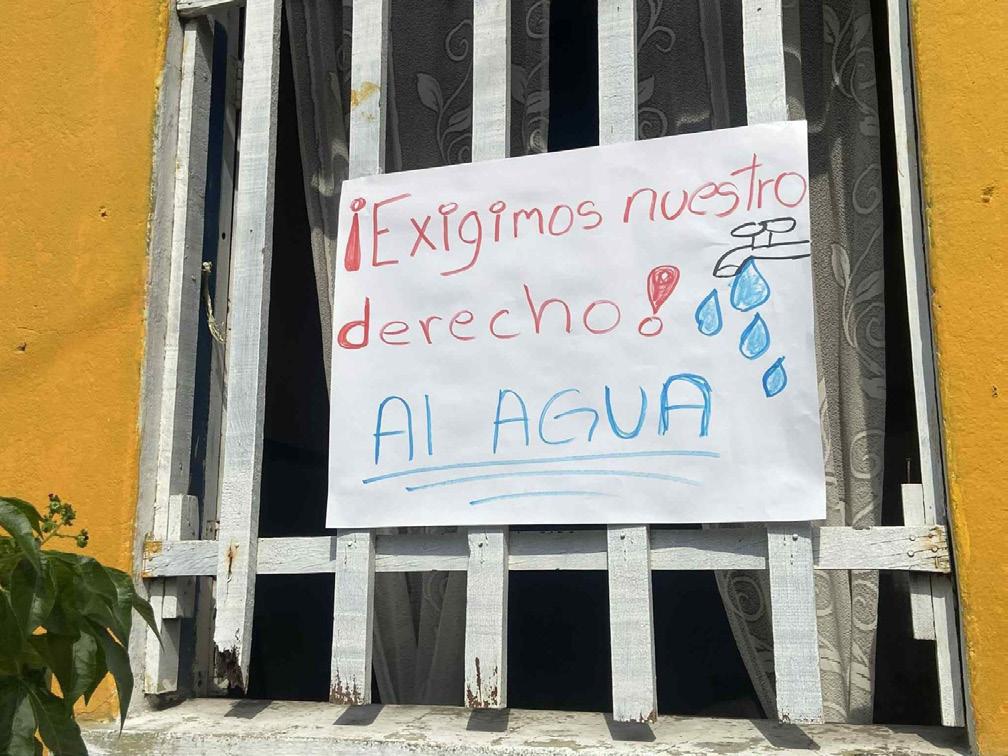 ¡Exigimos nuestro
derecho!
Al AGUA